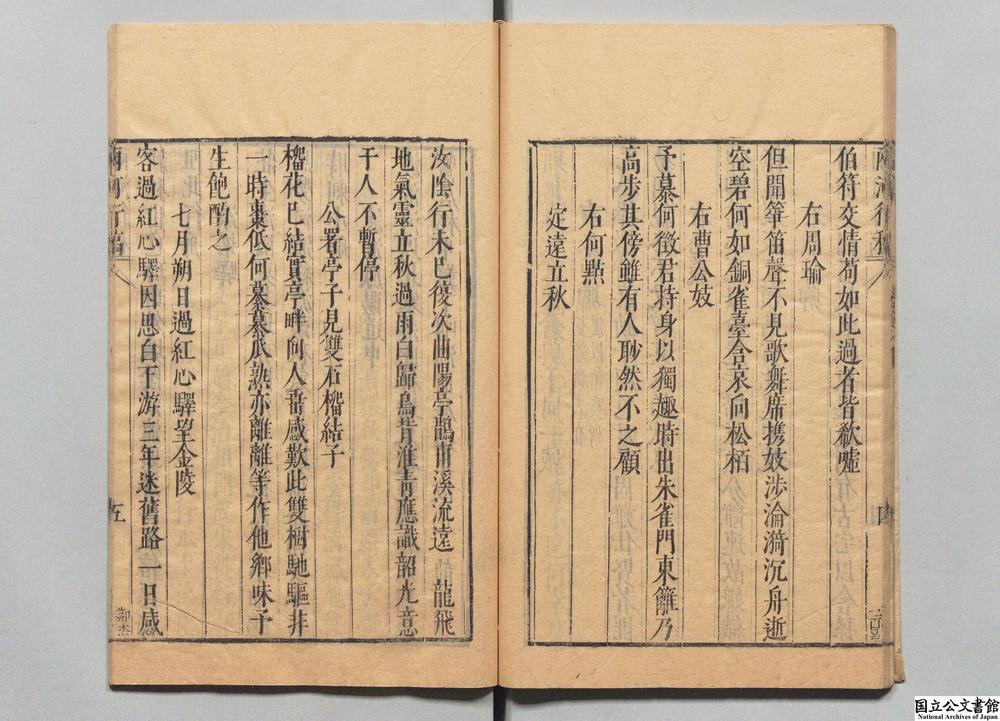 伯符交情苟如此過者皆欷嘘
右周瑜
但聞箏笛聲不見歌舞席携妓涉淪漪沉舟逝
空碧何如銅雀臺含哀向松栢
右曹公妓
予慕何徵君持身以獨趣時出朱雀門東籬乃
高步其傍雖有人眇然不之顧
右何㸃
定遠立秋
汝陰行未已復次曲陽亭鵲甫溪流遠龍飛
地氣靈立秋過雨白歸鳥背淮青應識韶光意
于人不暫停
公署亭子見雙石榴結子
榴花巳結實亭畔向人番感歎此雙樹馳驅非
一時棗低何纂纂瓜熟亦離離等作他鄉味予
生飽酌之
七月朔日過紅心驛望金陵
客過紅心驛因思白下游三年迷舊路一日感
兩河行稿
五
鄭杰
国立公文書館
National Archives of Japan